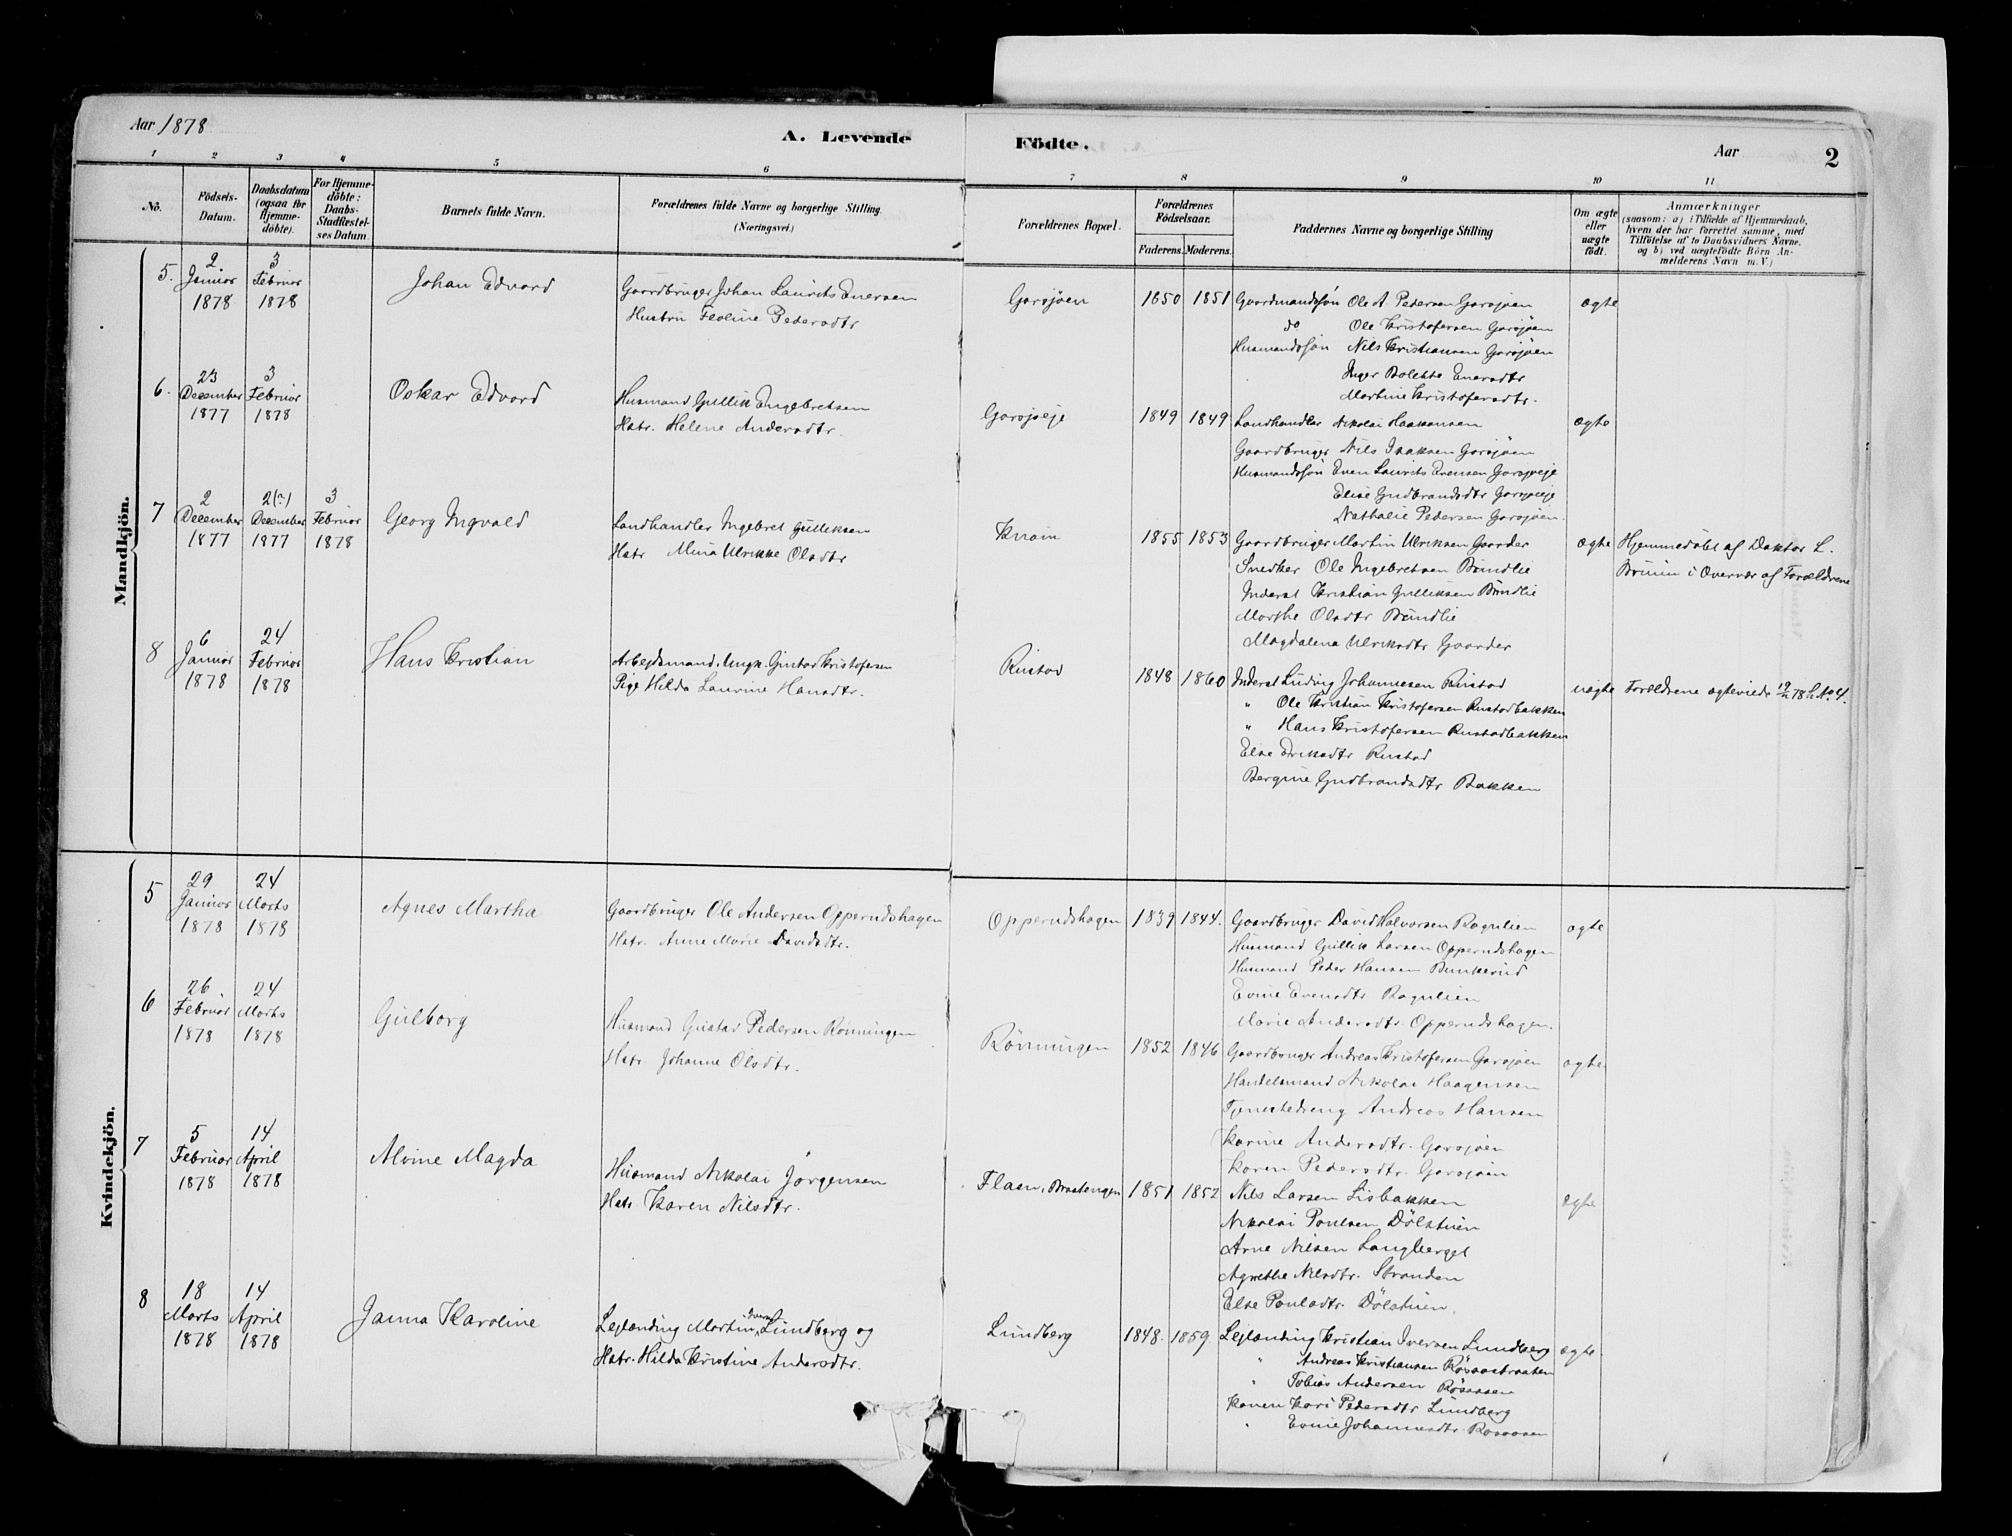 Aar 1878
A. Levende Födte.
Aar 2
1 2 3 4 5 6 7 8 9 10 11
No.
Födsels-Datum.
Daabsdatum (ogsaa for Hjemme-döbte).
For Hjemme-döbte: Daabs-Stadfæstel-ses Datum
Barnets fulde Navn.
Forældrenes fulde Navne og borgerlige Stilling (Næringsvei.)
Forældrenes Bopæl.
Forældrenes Födselsaar.
Faderens. Moderens.
Faddernes Navne og borgerlige Stilling
Om ægte eller uægte födt.
Anmærkninger
(saasom: a) i Tilfælde af Hjemmedaab, hvem der har forrettet samme, med Tilföielse af to Daabsvidners Navne, og b) ved uægtefödte Börn An-melderens Navn m. V.)
Mandkjön.
5. 2 Januar 1878
3 Februar 1878
Johan Edvard
Gaardbruger Johan Laurits Enersen
Hustru Feoline Pedersdtr
Garsjöen
1850 1851
Gaardmandssön Ole A. Pedersen Garsjöen
do Ole Kristofersen Garsjöen
Husmandssön Nils Kristiansen Garsjöen
Inger Bolette Enersdtr
Martine Kristofersdtr.
ægte
6. 23 December 1877
3 Februar 1878
Oskar Edvard
Husmand Gullik Engebretsen
Hstr. Helene Andersdtr.
Garsjöeje
1849 1849
Landhandler Nikolai Haakonsen
Gaardbruger Nils Isaksen Garsjöen
Husmandssön Even Laurits Evensen Garsjöeje
Elise Gudbrandsdtr Garsjöeje
Nathalie Pedersen Garsjöen.
ægte
7 2 December 1877
2(?) December 1877
3 Februar 1878
Georg Ingvald
Landhandler Ingebret Gulliksen
Hstr Mina Ulrikke Olsdtr
1855 1853
Gaardbruger Martin Ulriksen Gaarder
Snedker Ole Ingebretsen Brundlie
Inderst Kristian Gulliksen Brundlie
Marthe Olsdtr Brundlie
Magdalena Ulriksdtr Gaarder
ægte
Hjemmedöbt af Doktor L.
Bruun i Overvær af Forældrene
8 6 Januar 1878
24 Februar 1878
Hans Kristian
Arbejdsmand, Ungk. Gustav Kristofersen
Pige Hilda Laurine Hansdtr.
Rustad
1848 1860
Inderst Ludvig Johannesen Rustad
" Ole Kristian Kristofersen Rustadbakken
" Hans Kristofersen Rustadbakken
Else Eriksdtr Rustad
Bergine Gudbrandsdtr Bakken
uægte
Forældrene ægteviede 78 No 4.
Kvindekjön.
5 29 Januar 1878
24 Marts 1878
Agnes Martha
Gaardbruger Ole Andersen Opperudshagen
Hstr. Anne Marie Davidsdtr.
Opperudshagen
1839 1844.
Gaardbruger David Halvorsen Rognlien
Husmand Gullik Larsen Opperudshagen
Husmand Peder Hansen Bunkerud
Evine Evensdtr Rognlien
Marie Andersdtr. Opperudshagen.
ægte
6 26 Februar 1878
24 Marts 1878
Gulborg
Husmand Gustav Pedersen Rönningen
Hstr. Johanne Olsdtr.
Rönningen
1852 1846
Gaardbruger Andreas Kristofersen Garsjöen
Handelsmand Nikolai Haagensen
Tjenestedreng Andreas Hansen
Karine Andersdtr. Garsjöen
Karen Pedersdtr. Garsjöen
ægte.
7 5 Februar 1878
14 April 1878
Alvine Magda
Husmand Nikolai Jörgensen
Hstr. Karen Nilsdtr.
Flaen, Braatengen
1851 1852
Nils Larsen Lisbakken
Nikolai Poulsen Dölstuen
Arne Nilsen Langberget
Agnethe Nilsdtr. Stranden
Else Poulsdtr. Dölstuen.
ægte
8 18 Marts 1878
14 April 1878
Janna Karoline
Lejlænding Martin Iversen Lundberg og
Hstr. Hilda Kristine Andersdtr.
Lundberg
1848. 1859.
Lejlænding Kristian Iversen Lundberg
" Andreas Kristiansen Rösaasbraaten
" Tobias Andersen Rösaasen
Konen Kari Pedersdtr Lundberg
" Evine Johannesdtr. Rosaasen
ægte.